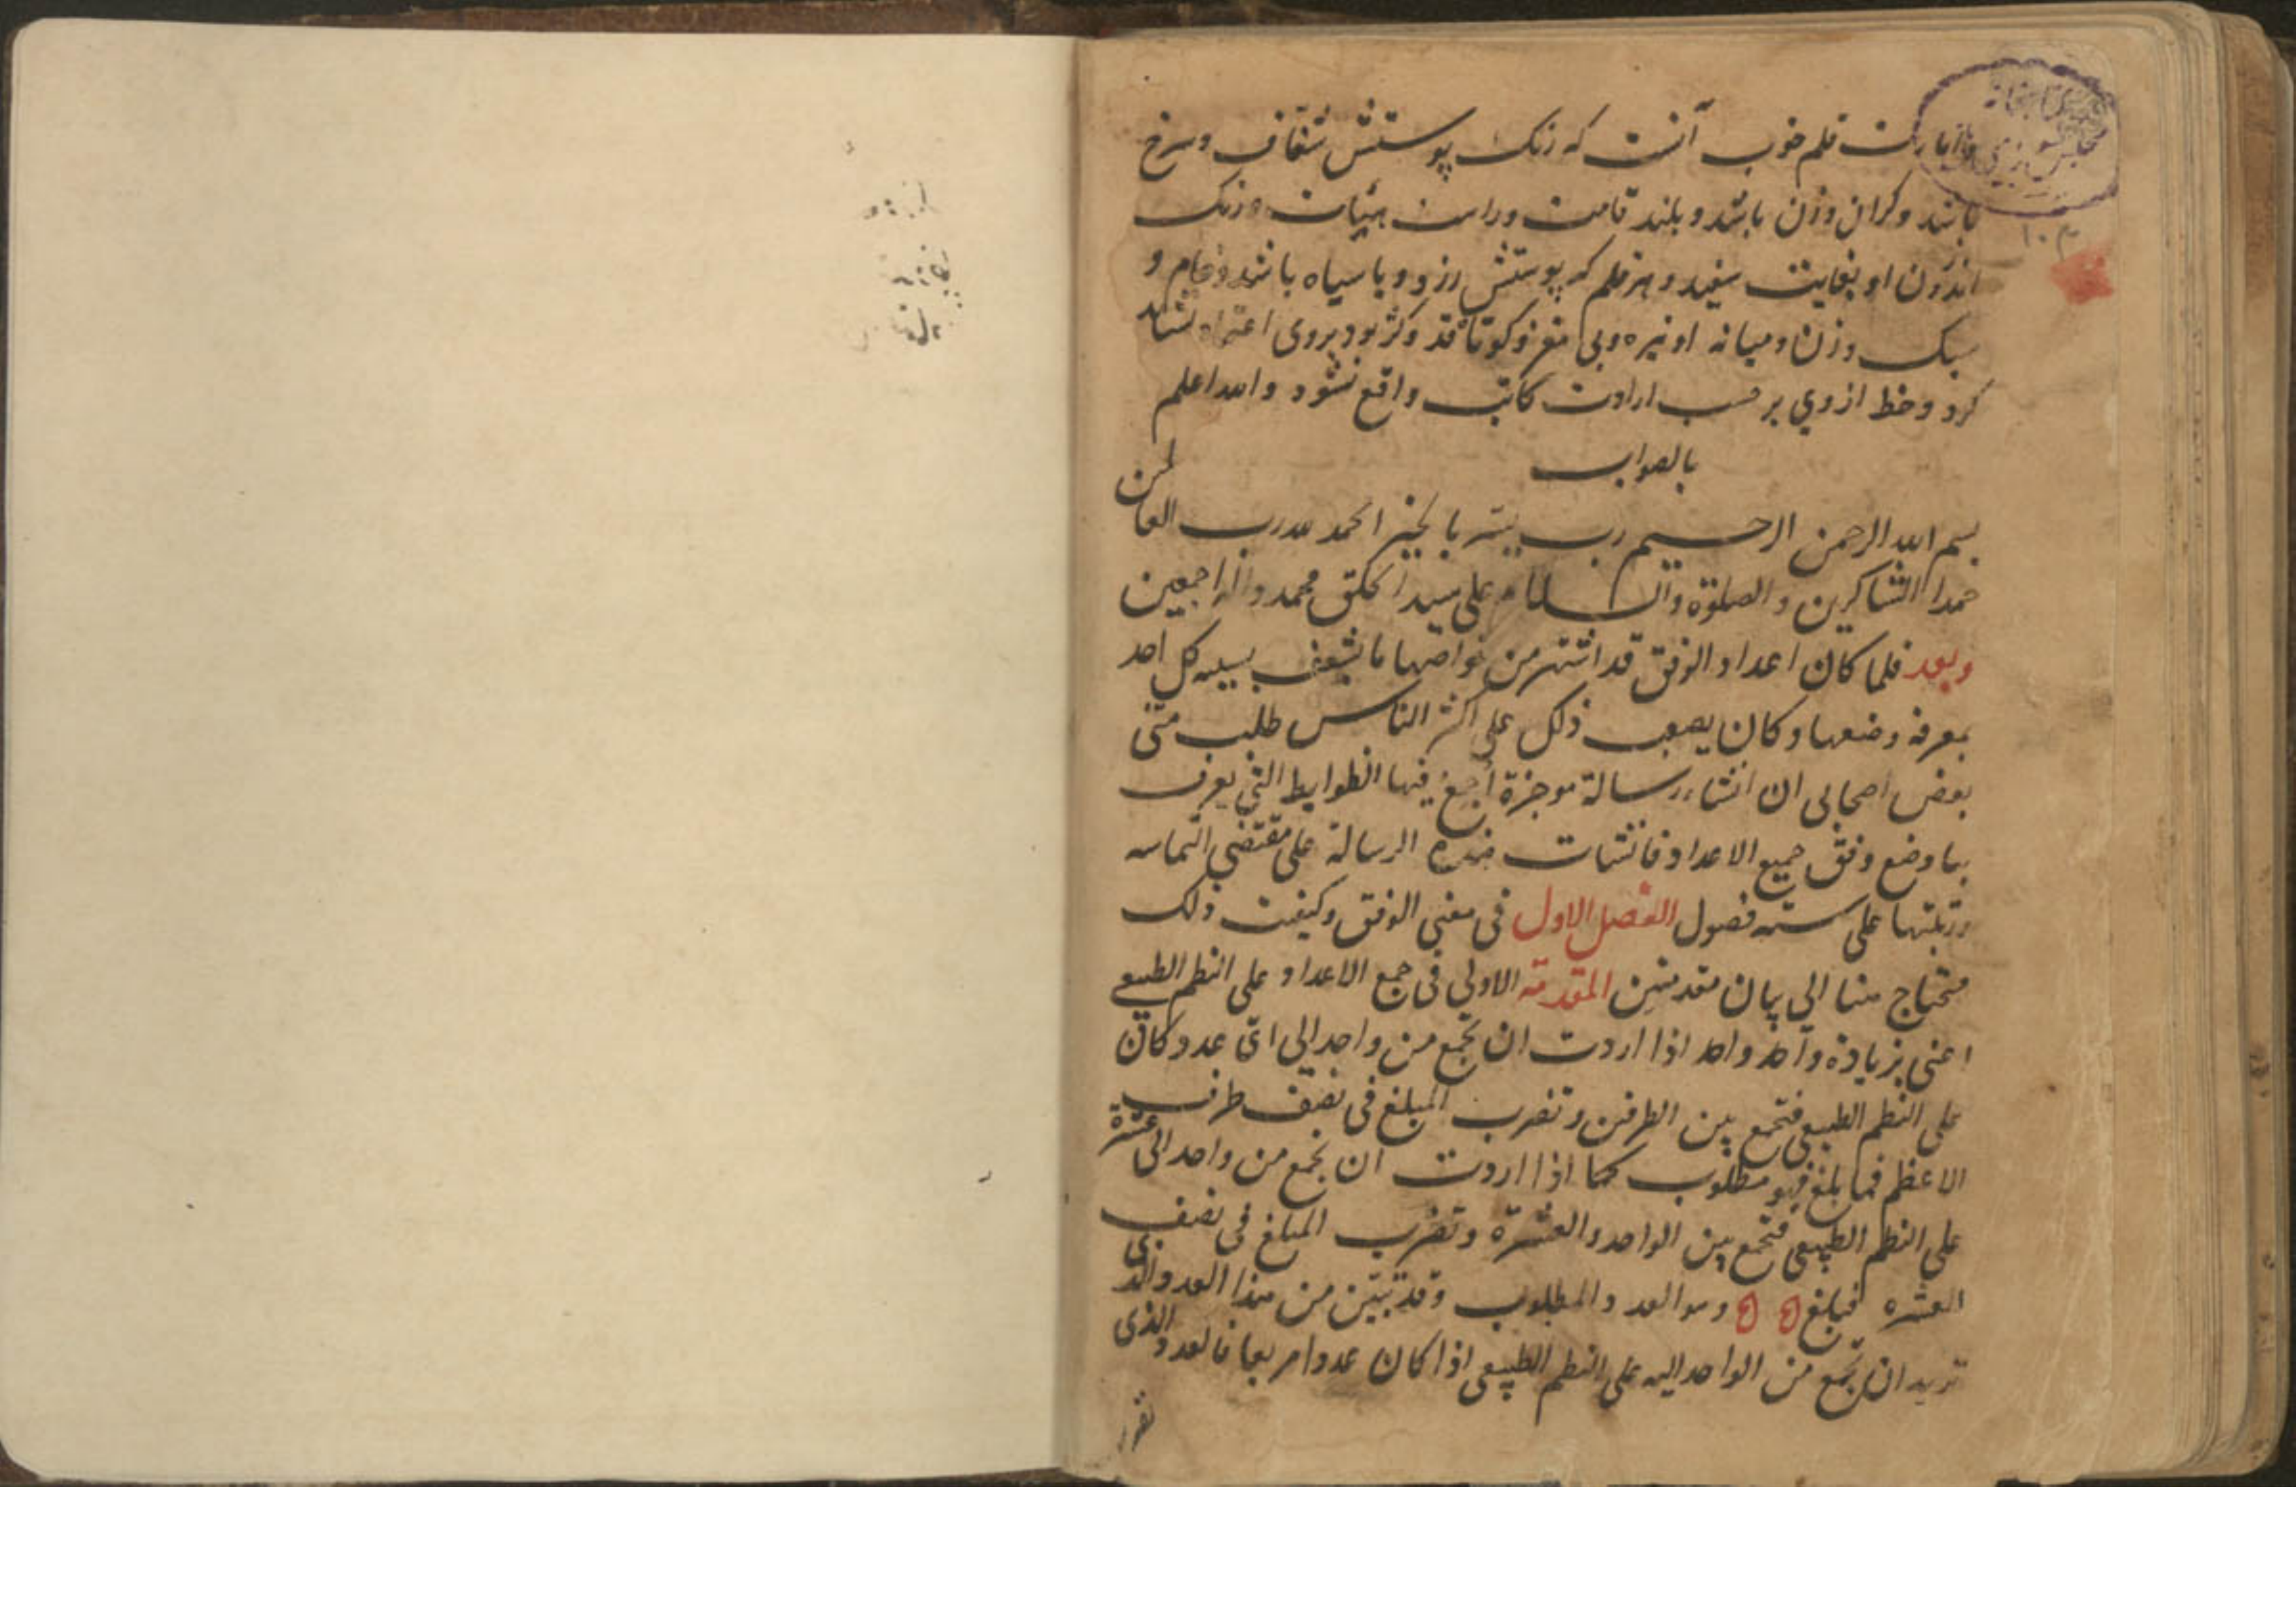 قلم خوب آنست که رنک پوستش شفاف و سرخ
باشد و کران وزن باشد و بلند قامت و راست هیئات و رنک
اندرون او بغایت سفید و هر قلم که پوستش زرد و یا سیاه باشد و خام و
سبک وزن و میانه او تیره و بی مغز و کوتاه قد و کژ بود بروی اعتماد نشاید
کرد و خط از وی بر حسب ارادت کاتب واقع نشود والله اعلم
بالصواب
بسم الله الرحمن الرحیم رب یسر بالخیر الحمد لله رب العالمین
حمدا الشاکرین والصلوة والسلام علی سید الخلق محمد وآله اجمعین
وبعد فلما کان اعداد الوفق قد اشتهر من خواصها ما یشعف بسببه کل احد
بمعرفة وضعها وکان یصعب ذلک علی اکثر الناس طلب منی
بعض اصحابی ان انشاء رسالة موجزة اجمع فیها الظوابط التی یعرف
بها وضع وفق جمیع الاعداد فانشات هذه الرسالة علی مقتضی التماسه
ورتبتها علی سته فصول الفصل الاول فی معنی الوفق وکیفیت ذلک
محتاج هنا الی بیان مقدمتین المقدمة الاولی فی جمع الاعداد علی النظم الطبیعی
اعنی بزیادة واحد واحد اذا اردت ان تجمع من واحد الی ای عدد کان
علی النظم الطبیعی فتجمع بین الطرفین وتضرب المبلغ فی نصف طرف
الاعظم فما بلغ فهو مطلوب کما اذا اردت ان تجمع من واحد الی عشرة
علی النظم الطبیعی فتجمع بین الواحد والعشرة وتضرب المبلغ فی نصف
العشره فبلغ ۵ ۵ وهو العدد والمطلوب وقد تبین من هذا العدد والذی
ترید ان تجمع من الواحد الیه علی النظم الطبیعی اذا کان عددا مربعا فالعدد الذی